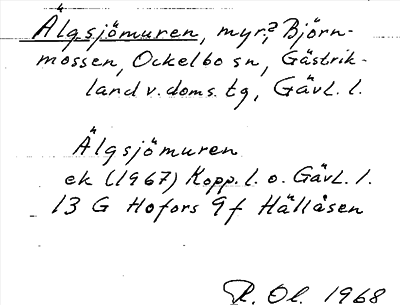 Älgsjömuren, myr,? Björn-
mossen, Ockelbo sn, Gästrik-
land v. doms. tg, Gävl. l.
Älgsjömuren
ek (1967) Kopp. l. o. Gävl. l.
13 G Hofors 9f Hällåsen
R. Ol. 1968